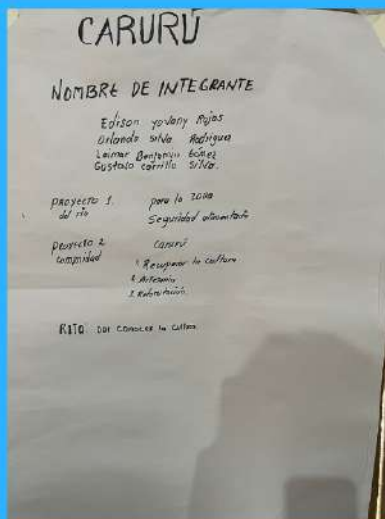 CARURÚ
NOMBRE DE INTEGRANTE
Edison yovany Rojas
Orlando silva Rodriguez
Laimar Benjamin Gómez
Gustavo carrillo Silva.
proyecto 1. para la zona
del río Seguridad alimentaria
proyecto 2 Carurú
comunidad 1. Recuperar la cultura
2. Artesania
3. Reforestación.
RITO DAR CONOCER la cultura